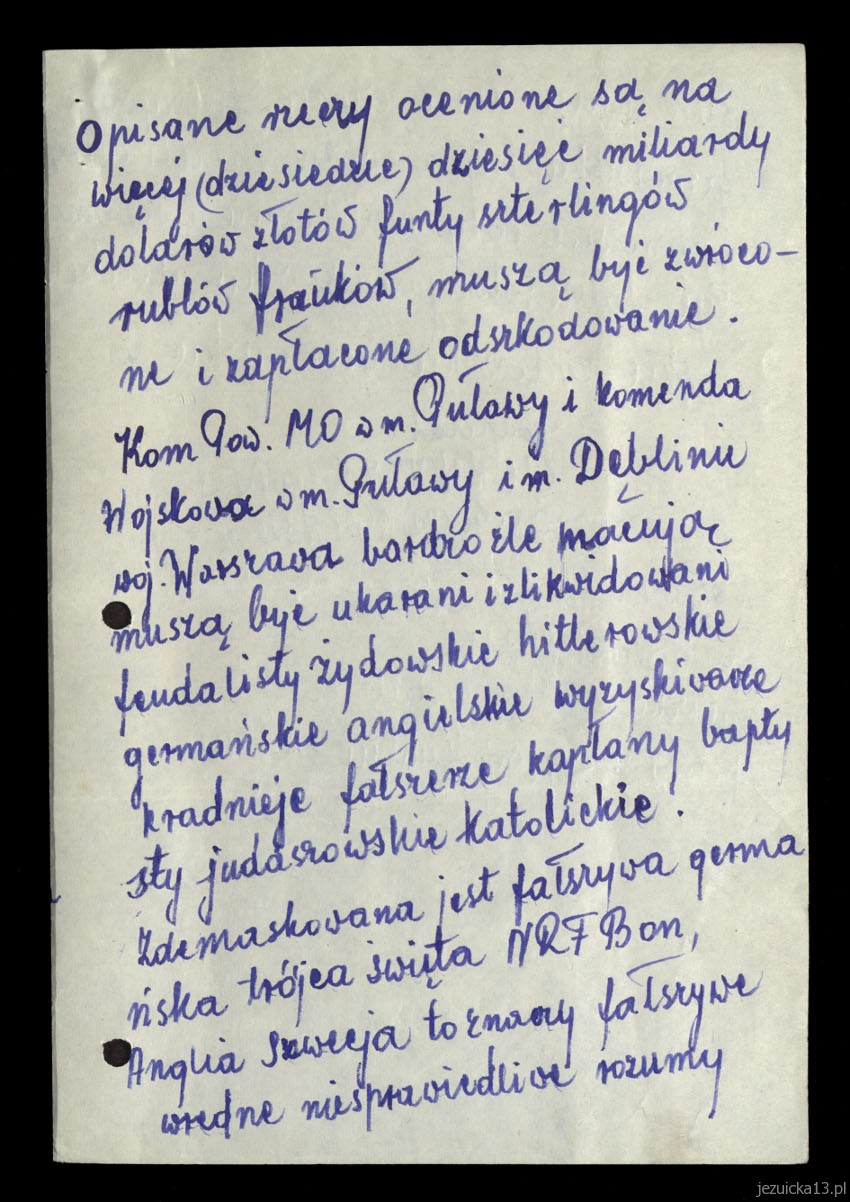 Opisane rzeczy ocenione są na
więcej (dziesiedzie) dziesięć miliardy
dolarów złotów funty szterlingów
rublów frańków, muszą być zwróco-
ne i zapłacone odszkodowanie.
Kom Pow. MO w m. Puławy i komenda
Wojskowa w m. Puławy i m. Dęblinie
woj. Warszawa bardzo źle
muszą być ukarani i zlikwidowani
feudalisty żydowskie hitlerowskie
germańskie angielskie wyzyskiwacze
kradnieje fałszerze kapłany bapty
sty judaszowskie katolickie.
Zdemaskowana jest fałszywa germa
ńska trójca święta NRF Bon,
Anglia Szwecja to znaczy fałszywe
wredne niesprawiedliwe rozumy
jezuicka13.pl